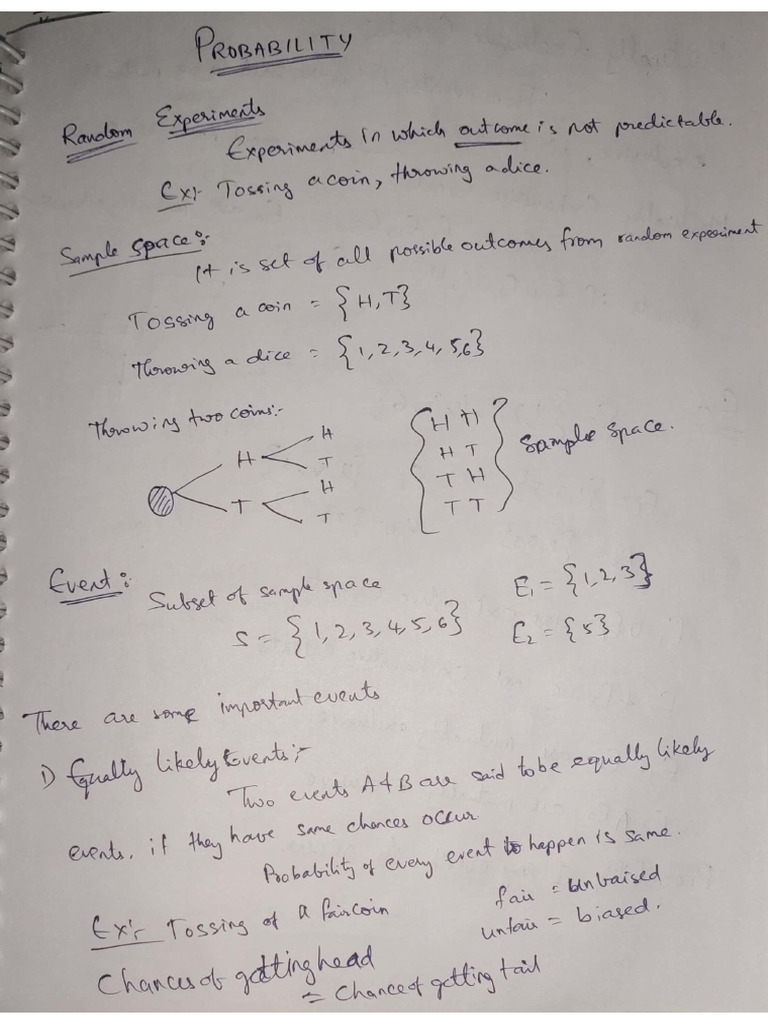 PROBABILITY
Random Experiments
Experiments in which outcome is not predictable.
Ex:- Tossing a coin, throwing a dice.
Sample space:-
It is set of all possible outcomes from random experiment
Tossing a coin = {H, T}
Throwing a dice = {1, 2, 3, 4, 5, 6}
Throwing two coins:-
H
H
T
T
H
T
H H
H T
T H
T T
Sample space.
Event:
Subset of sample space
S = {1, 2, 3, 4, 5, 6}
E1 = {1, 2, 3}
E2 = {5}
There are some important events
1) Equally likely Events:-
Two events A & B are said to be equally likely
events, if they have same chances occur.
Probability of every event to happen is same.
Ex:- Tossing of a fair coin
fair = unbaised
unfair = biased.
Chances of getting head
= Chance of getting tail